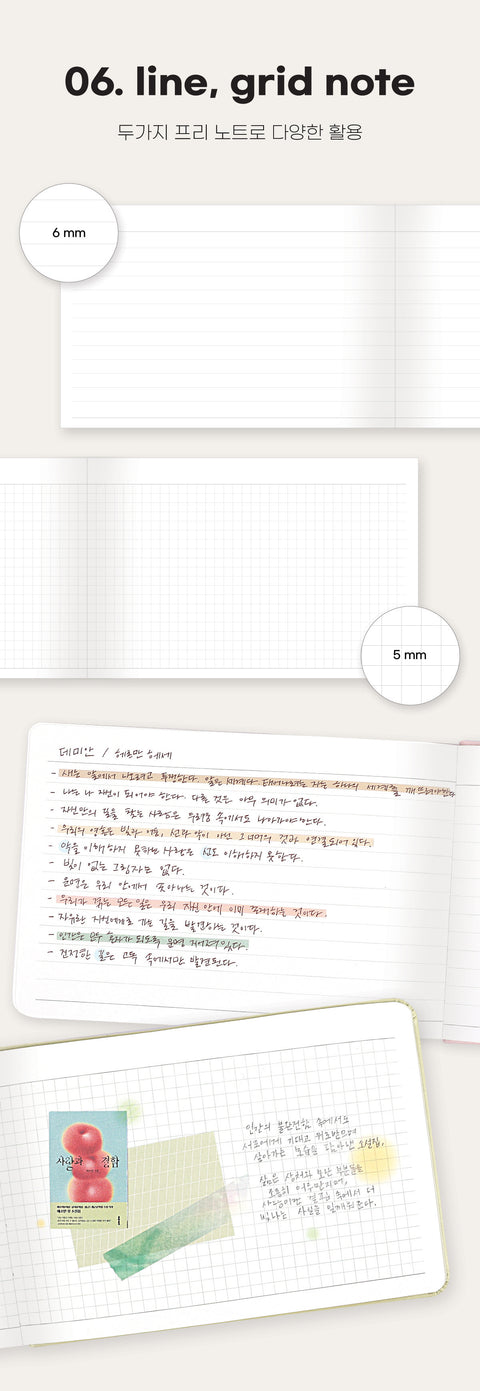 06. line, grid note
두가지 프리 노트로 다양한 활용
6 mm
5 mm
데미안 / 헤르만 헤세
- 새는 알에서 나오려고 투쟁한다. 알은 세계다. 태어나려는 자는 하나의 세계를 깨뜨려야한다
- 나는 나 자신이 되어야 한다. 다른 것은 아무 의미가 없다.
- 자신만의 길을 찾는 사람은 우리는 속에서도 나아가야한다.
- 우리의 영혼은 빛과 어둠, 선과 악이 아닌 그 너머의 것과 연결되어 있다.
- 악을 이해하지 못하는 사람은 선도 이해하지 못한다.
- 빛이 없는 그림자는 없다.
- 운명은 우리 안에서 솟아나는 것이다.
- 우리가 찾는 모든 일은 우리 자신 안에 이미 존재하는 것이다.
- 자유란 자신에게로 가는 길을 발견하는 것이다.
- 인간은 모두 혼자가 되도록 운명 지어져 있다.
- 진정한 길은 고독 속에서만 발견된다.
사랑과 결함
인간의 불완전함 속에서도
서로에게 기대고 위로받으며
살아가는 모습을 담아낸 소설집.
삶은 상처와 모난 부분들을
조용히 어루만지며,
사랑이란 결국 속에서 더
빛나는 사실을 일깨워준다.